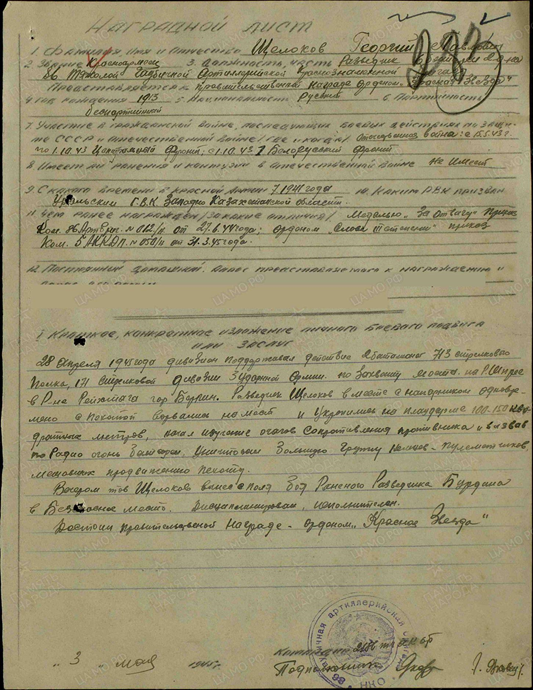 НАГРАДНОЙ ЛИСТ
1. Фамилия имя и отчество Щелоков Георгий
2. Звание Красноармеец 3. Должность, часть Разведчик
86 Тяжелой Гаубичной Артиллерийской
Представляется к Правительственной награде орденом „Красная Звезда“
4. Год рождения 1913 5. Национальность Русский 6. Партийность
беспартийный
7. Участие в гражданской войне, последующих боевых действиях по защите
СССР и отечественной войне (где и когда) Отечественная война с
по 1.10.43 Центральный Фронт; с 1.10.43 1 Белорусский фронт
8. Имеет ли ранения и контузии в Отечественной войне Не имеет
9. С какого времени в красной армии 7.1941 года 10. Каким РВК призван
Уральским ГВК Западно Казахстанской области.
11. Чем ранее награжден (за какие отличия) Медалью „За Отвагу“ приказ
от 27.6.44 года; орденом Слава приказ
Ком. 5 АККДП. № 050/н от 31.3.45 года.
12. Постоянный домашний адрес представляемого к награждению и
I Краткое, конкретное изложение личного боевого подвига
или заслуг
28 Апреля 1945 года дивизион поддерживая действие 2 батальона 713 стрелкового
Полка, 171 стрелковой дивизии 3 Ударной Армии. по Захвату моста на Р. Шпрее
в Р-не Рейхстага гор Берлин. Разведчик Щелоков вместе с
с Пехотой ворвались на мост и Укрепились на плацдарме 100-150
метров, начал изучение огнев сопротивления противника и вызвав
по Радио огонь батареи, Уничтожил Большую Группу Немцев - Пулеметчиков
мешавших продвижению пехоты.
тов Щелоков вынес с поля боя Раненого Разведчика Бурдина
в Безопасное место. Дисциплинирован, исполнителен.
Достоин правительственной Награде - орденом „Красная Звезда“
Подполковник
„3“ мая 1945г.